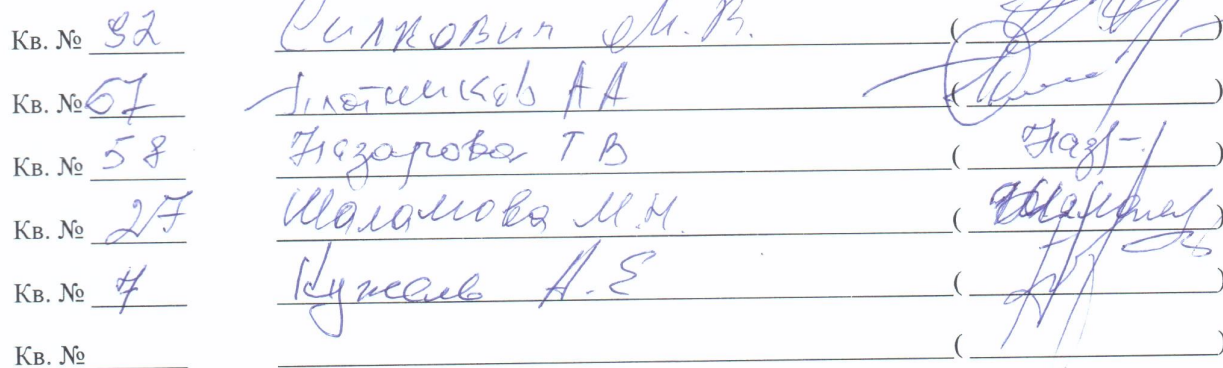 Кв. № 92 Силкович М.В. ( )
Кв. № 67 Плотников АА ( )
Кв. № 58 Назарова Т В ( Наз )
Кв. № 27 Шаламова М.Н. ( )
Кв. № 7 Кужель А.Е ( )
Кв. № ( )